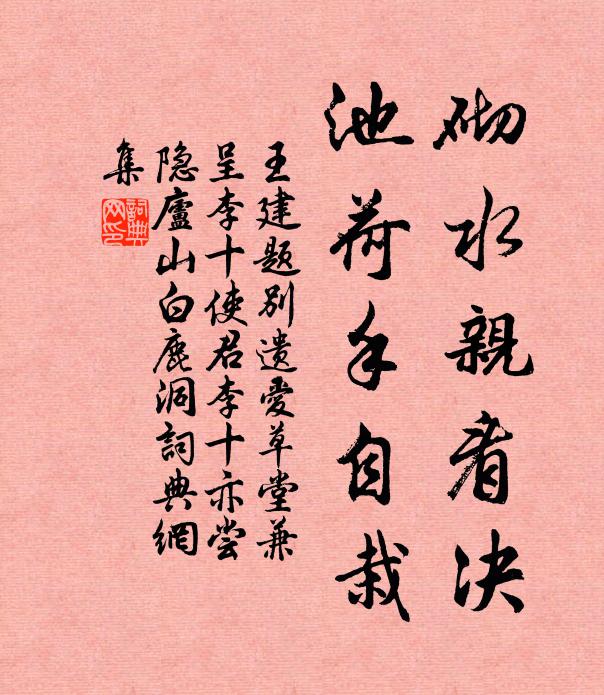 砌水親看决
池荷手自栽
王建题别遗爱草堂兼
呈李十使君李十亦尝
隐廬山白鹿洞詞典網
集
詞典網印